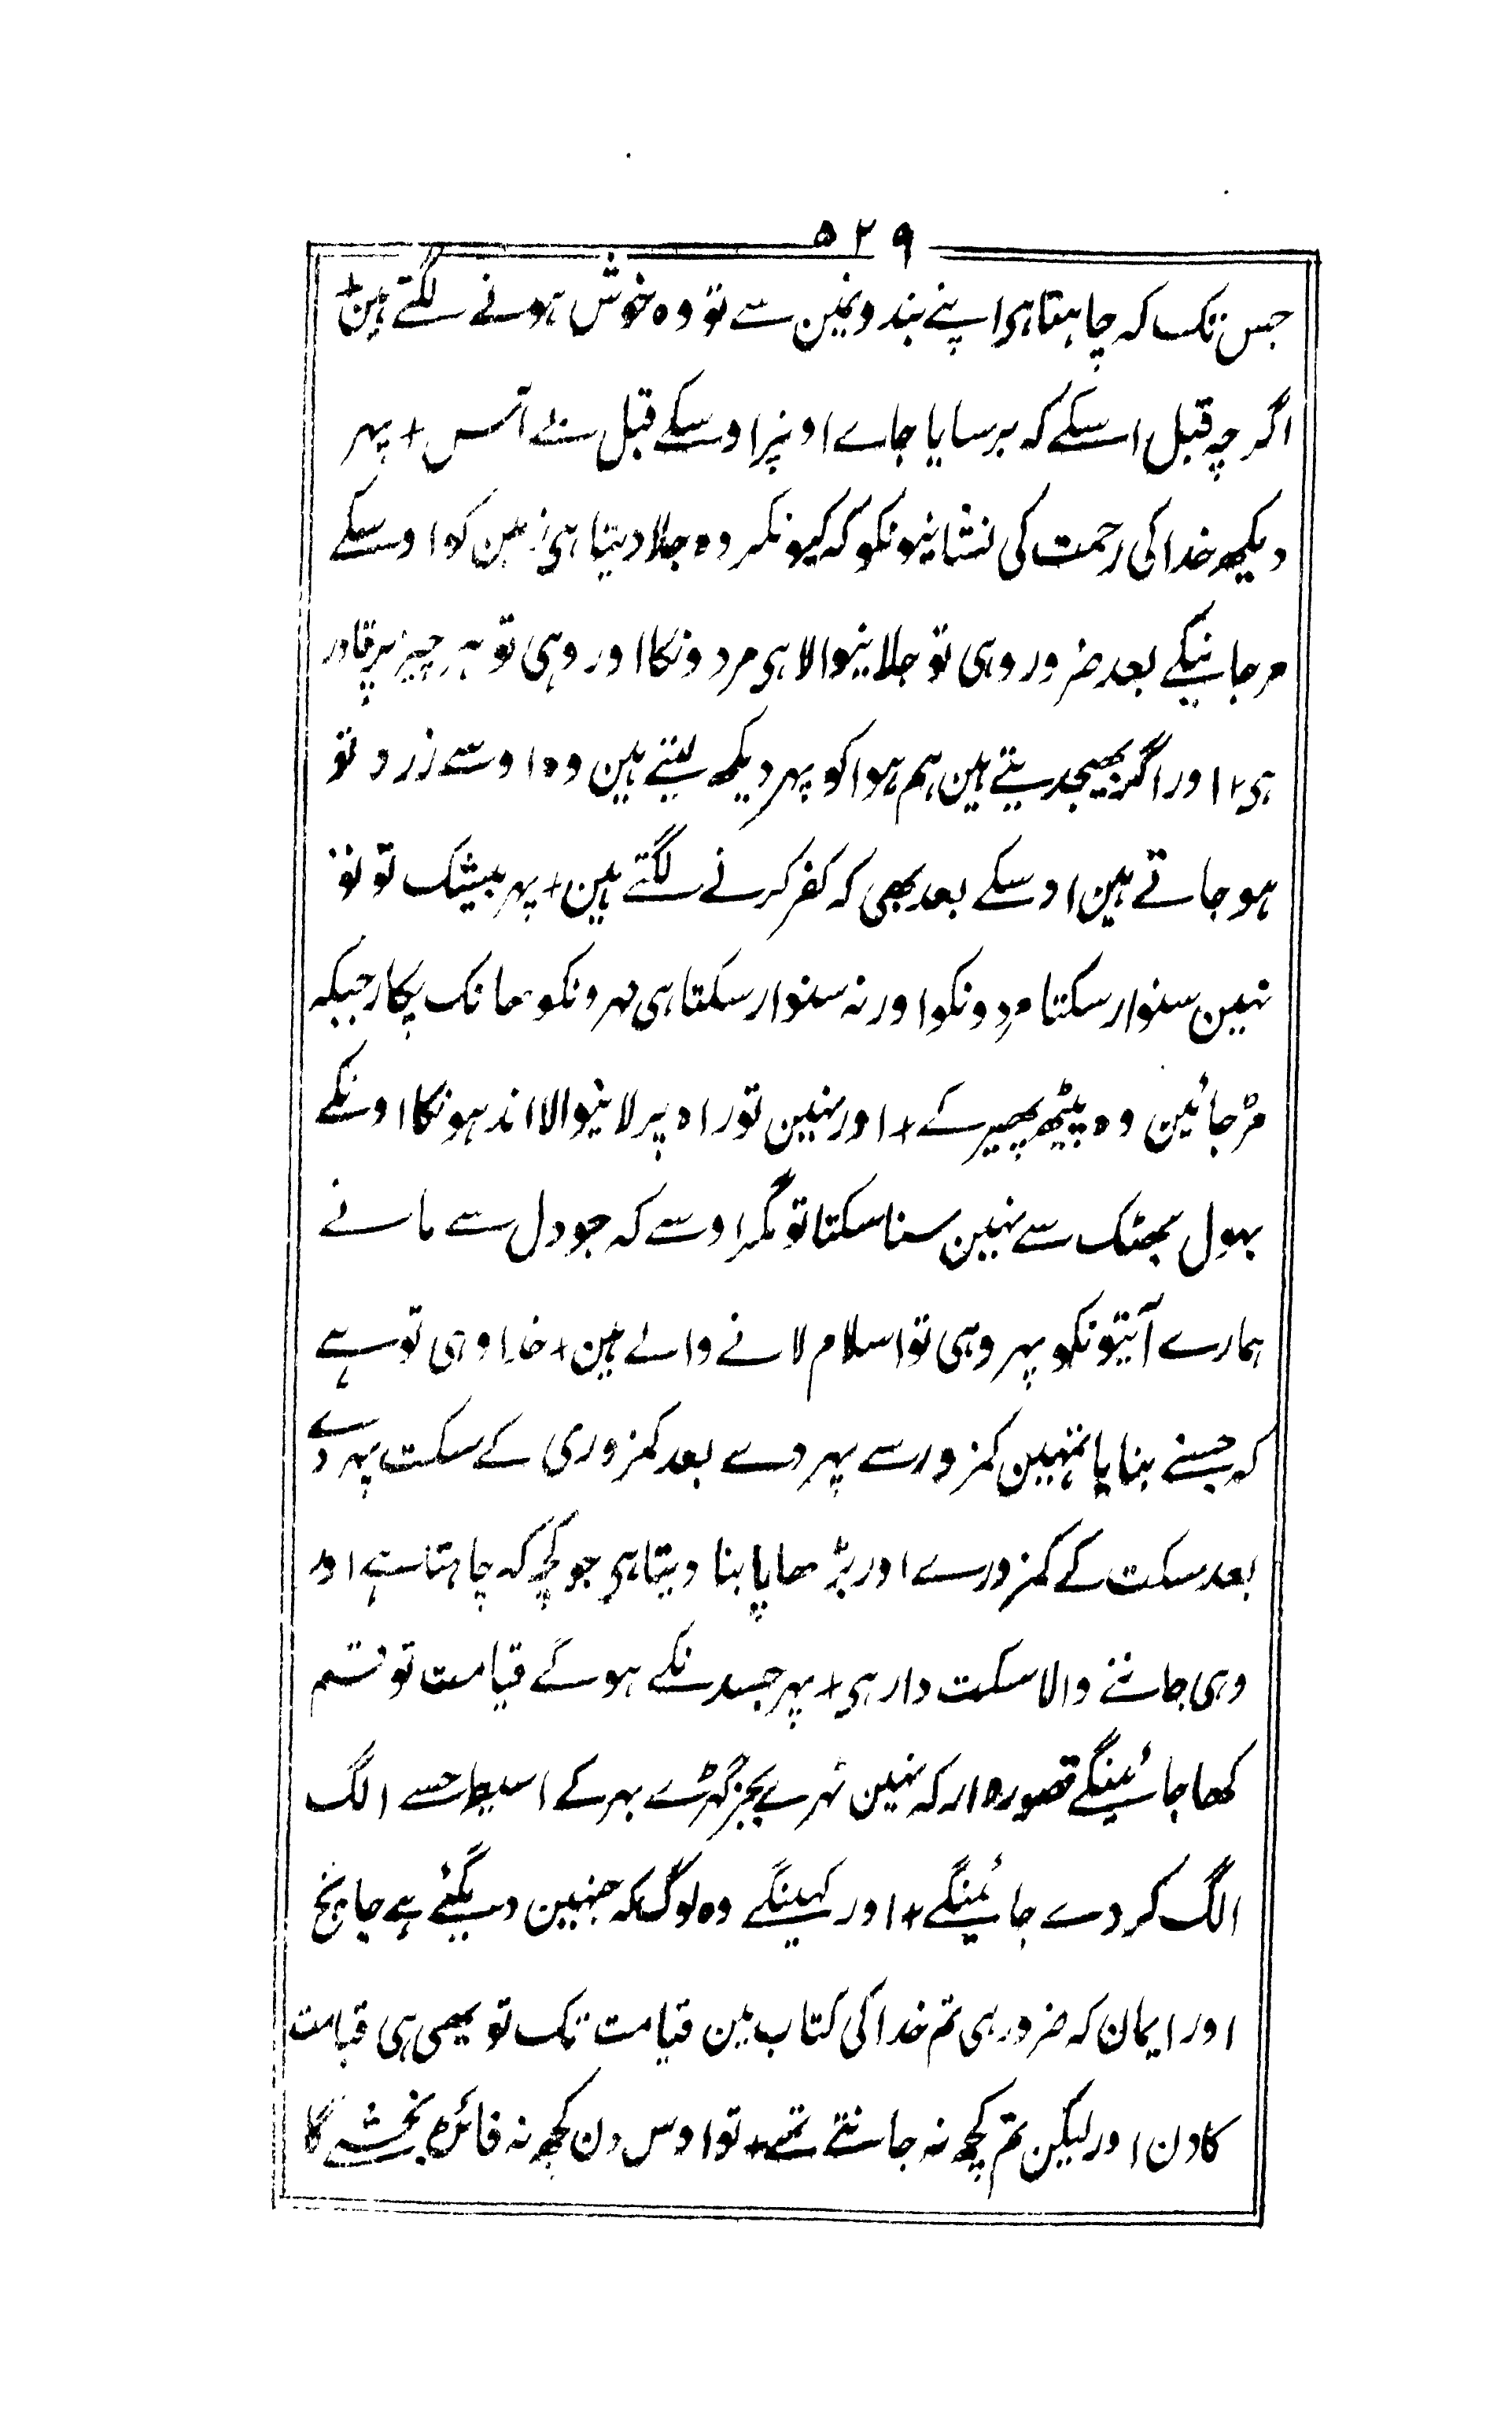 ۵۲۹
جس تک کہ چاہتا ہی اپنے بندونمین سے تو وہ خوش ہونے لگتے ہین +
اگرچہ قبل اسکے کہ برسایا جاے اونپر اوسکے قبل سے آس + پہر
دیکھ خدا کی رحمت کی نشانیونکو کہ کیونکر وہ جلا دیتا ہی زمین کو اوسکے
مرجانیکے بعد ضرور وہی تو جلانیوالا ہی مردونکا اور وہی تو ہر چیز پر قادر
ہی + اور اگر بھیجدیتے ہین ہم ہوا کو پہر دیکھ لیتے ہین وہ اوسے زرد تو
ہوجاتے ہین اوسکے بعد بھی کہ کفر کرنے لگتے ہین + پہر بیشک تو تو
نہین سنوار سکتا مردونکو اور نہ سنوار سکتا ہی بہرونکو ہانک پکار جبکہ
مڑجائین وہ پیٹھ پھیر کے + اور نہین تو راہ پر لانیوالا اندہونکا اونکے
بہول بھٹک سے نہین سنا سکتا تو مگر اوسے کہ جو دل سے مانے
ہمارے آیتونکو پہر وہی تو اسلام لانے والے ہین + خدا وہی تو ہے
کہ جسنے بنایا تمہین کمزور سے پہر دے بعد کمزوری کے سکت پہر دے
بعد سکت کے کمزورے اور بڑھاپا بنا دیتا ہی جو کچھ کہ چاہتا ہے اور
وہی جاننے والا سکت دار ہی + پہر جسدنکے ہوگے قیامت تو قسم
کھا جائینگے قصوروار کہ نہین ٹہرے بجز گہڑے بہر کے اسیطرحسے الگ
الگ کر دے جائینگے + اور کہینگے وہ لوگ کہ جنہین دیگئے ہے جانچ
اور ایمان کہ ضرور رہی تم خدا کی کتاب مین قیامت تک تو یھی ہی قیامت
کا دن اور لیکن تم کچھ نہ جانتے تھے + تو اوس دن کچھ نہ فائدہ بخشے گا